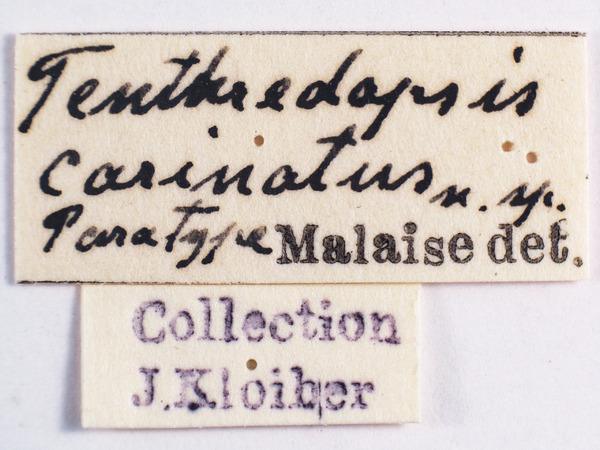 Tenthredopsis
carinatus n. sp.
Paratype Malaise det.
Collection
J. Kloiber